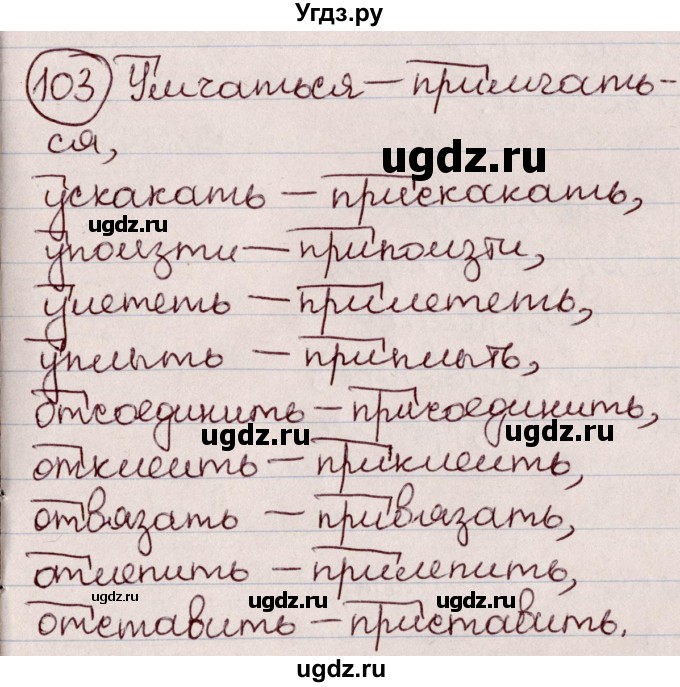 Угдз.ру
103 Умчаться — примчать-
ся,
ugdz.ru
ускакать — прискакать,
ugdz.ru
уползти — приползти,
улететь — прилететь,
уплыть — приплыть,
отсоединить — присоединить,
ugdz.ru ugdz.ru
отклеить — приклеить,
отвязать — привязать,
отлепить — прилепить,
ugdz.ru ugdz.ru ugdz.ru
отставить — приставить.
ugdz.ru